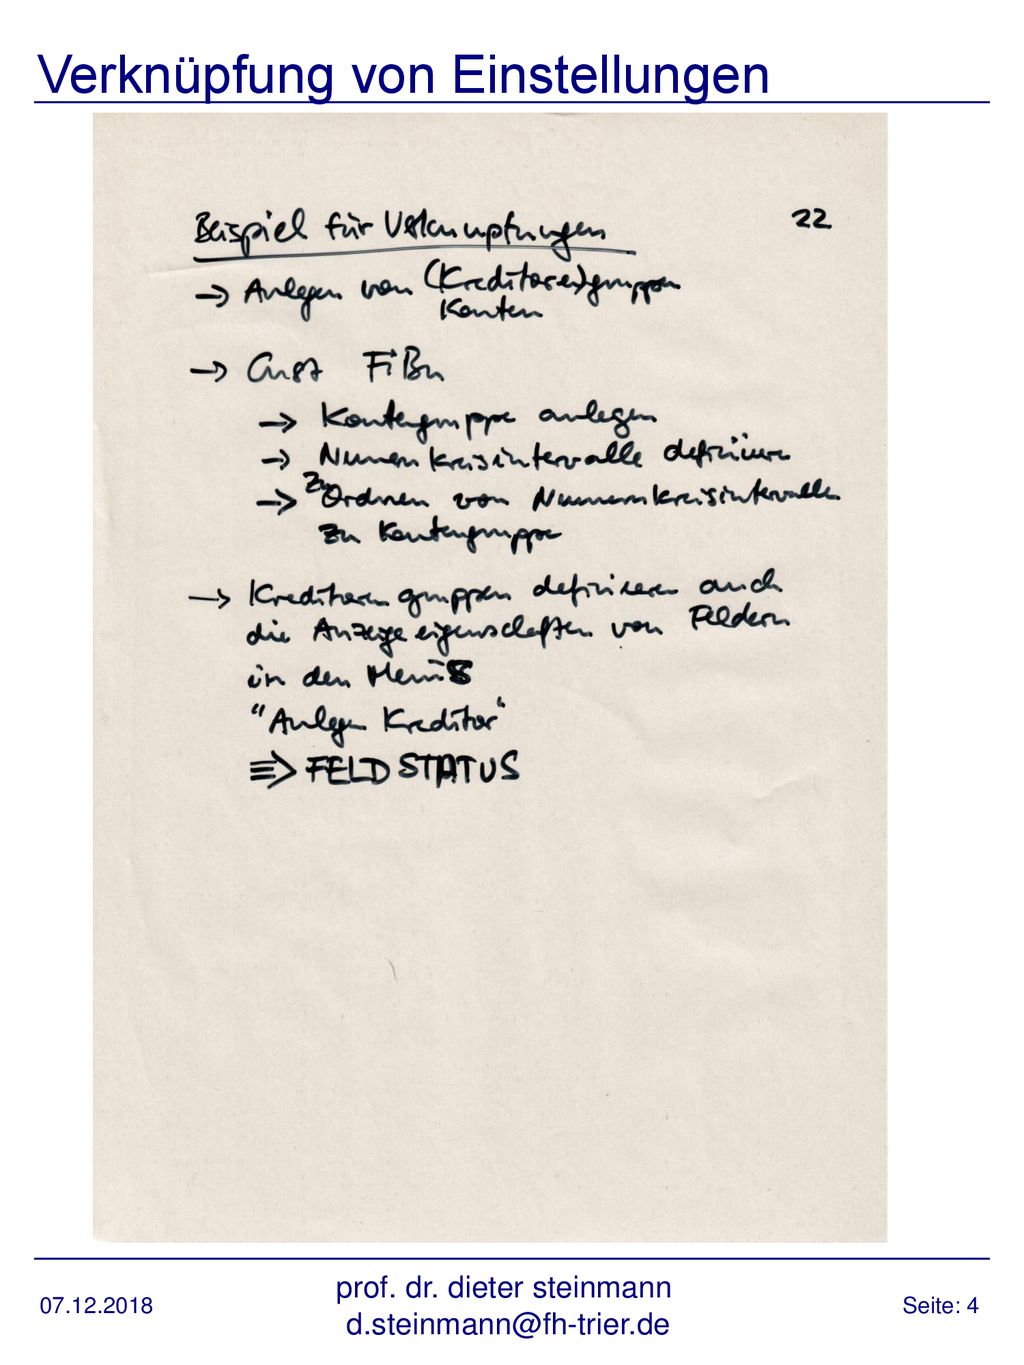 Verknüpfung von Einstellungen
Beispiel für Verknüpfungen 22
→ Anlegen von (Kreditoren)gruppen
Konten
→ Cust FiBu
→ Kontengruppe anlegen
→ Nummernkreisintervalle definieren
→ Zu Ordnen von Nummernkreisintervallen
zu Kontengruppe
→ Kreditorengruppen definieren auch
die Anzeigeeigenschaften von Feldern
in den Menüs
"Anlegen Kreditor"
⇒ FELDSTATUS
07.12.2018
prof. dr. dieter steinmann
d.steinmann@fh-trier.de
Seite: 4